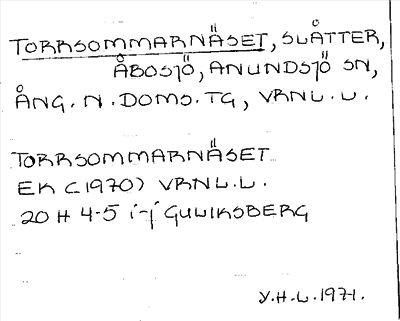 TORRSOMMARNÄSET, SLÅTTER,
ÅBOSJÖ, ANUNDSJÖ SN,
ÅNG. N. DOMS. TG, VRNL. L.
TORRSOMMARNÄSET
EK (1970) VRNL.L.
20 H 4-5 i-j GULIKSBERG
Y.H.L. 1971.